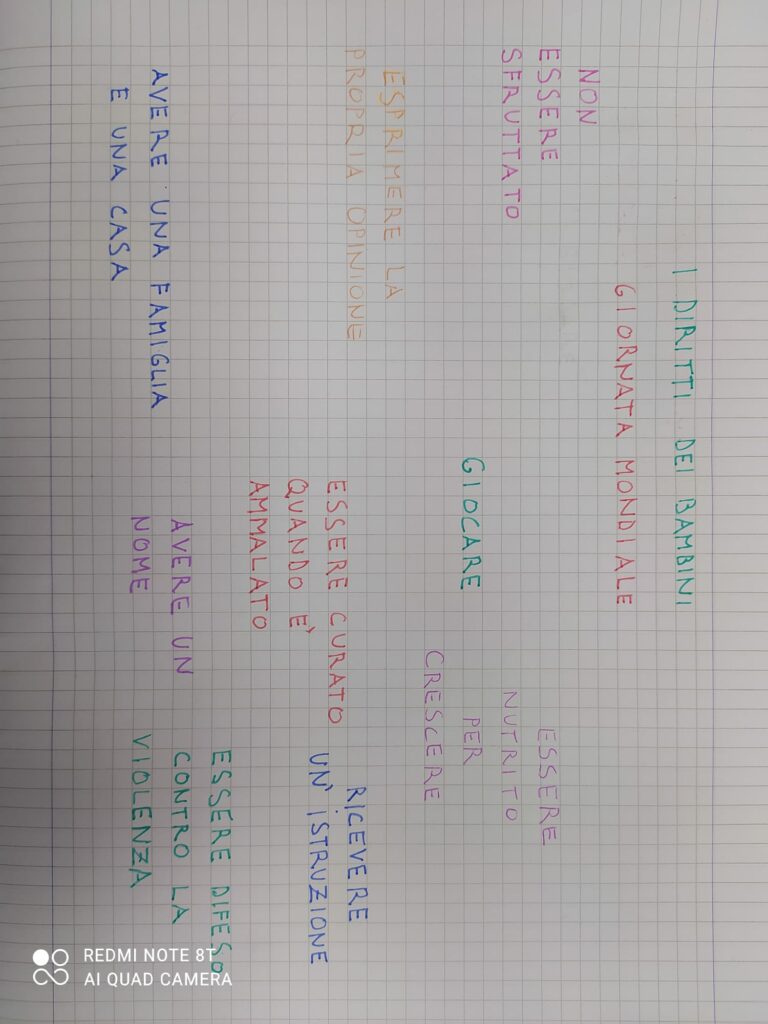 I DIRITTI DEI BAMBINI
GIORNATA MONDIALE
NON
ESSERE
SFRUTTATO
ESSERE
NUTRITO
PER
CRESCERE
GIOCARE
ESPRIMERE LA
PROPRIA OPINIONE
ESSERE CURATO
QUANDO E'
AMMALATO
RICEVERE
UN' ISTRUZIONE
AVERE UNA FAMIGLIA
E UNA CASA
AVERE UN
NOME
ESSERE DIFESO
CONTRO LA
VIOLENZA
REDMI NOTE 8T
AI QUAD CAMERA